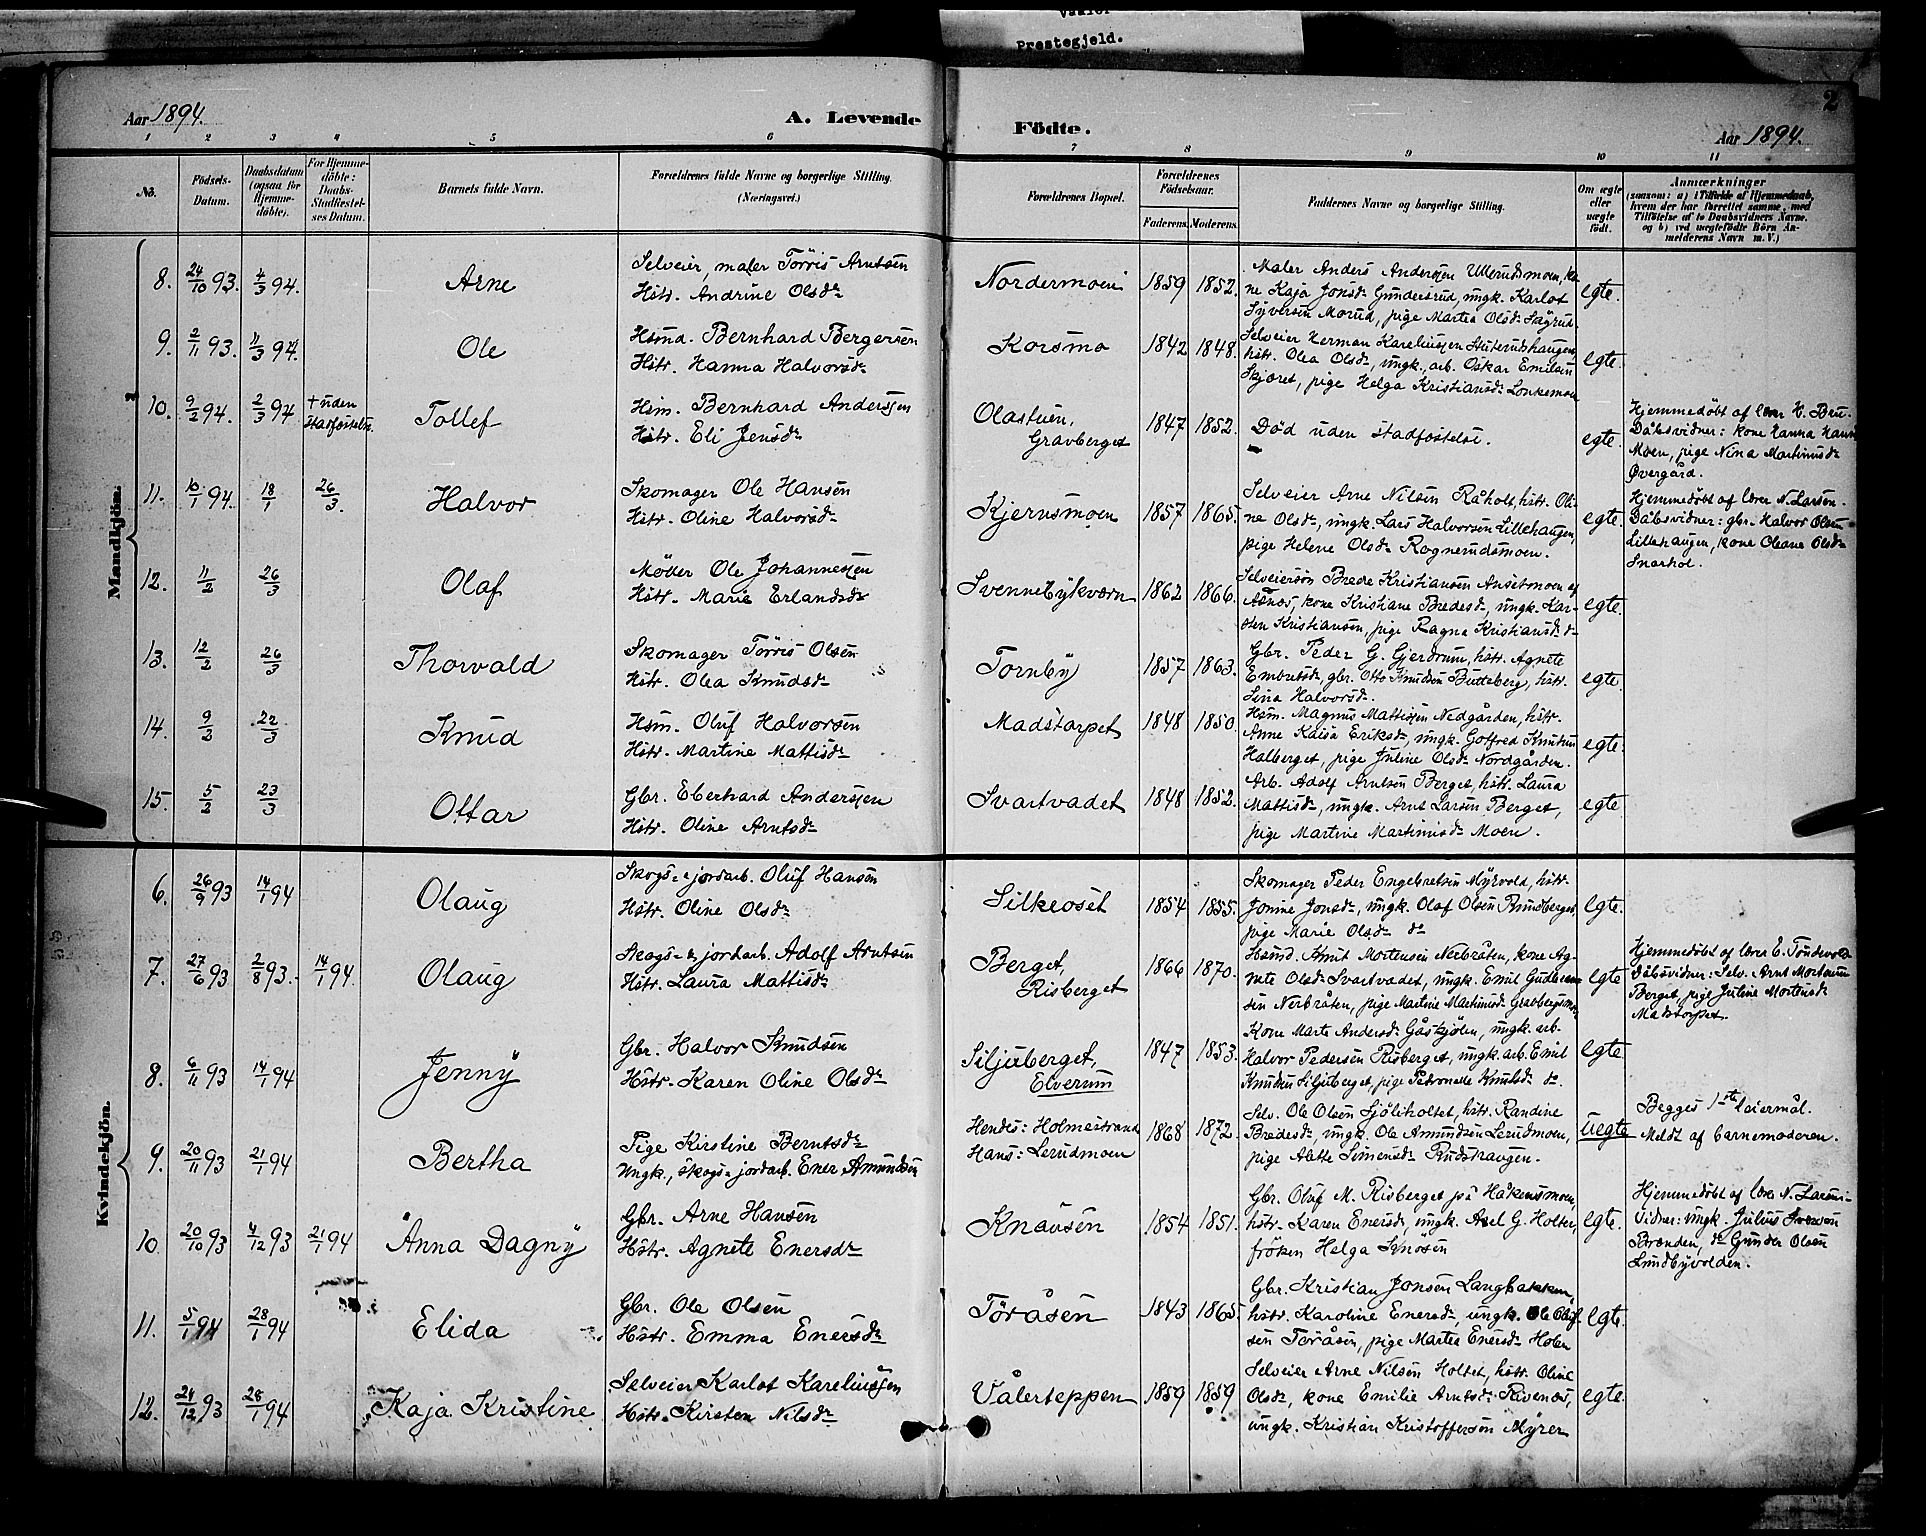 Vaaler
Prestegjeld.
2
Aar 1894.
A. Levende Födte.
Aar 1894.
1 2 3 4 5 6 7 8 9 10 11
No.
Födsels-
Datum.
Daabsdatum
(ogsaa for
Hjemme-
döbte).
For Hjemme-
döbte:
Daabs-
Stadfæstel-
ses Datum.
Barnets fulde Navn.
Forældrenes fulde Navne og borgerlige Stilling.
(Næringsvei.)
Forældrenes Bopæl.
Forældrenes
Födselsaar.
Faderens. Moderens.
Faddernes Navne og borgerlige Stilling.
Om ægte
eller
uægte
födt.
Anmærkninger
(saasom: a) i Tilfælde af Hjemmedaab,
hvem der har forrettet samme, med
Tilföielse af to Daabsvidners Navne.
og b) ved uægtefödte Börn An-
melderens Navn m. V.)
Mandkjön.
8. 24/10 93. 4/3 94. Arne
Selveier, maler Törris Arntsen
Hstr. Andrine Olsdr
Nordermoen 1859 1852.
Maler Anders Anderssen Ullerudsmoen, ko-
ne Kaja Jonsdr Gundersrud, ungk. Karlot
Syversen Morud, pige Martea Olsdr Sagrud.
egte.
9. 2/11 93. 11/3 94. Ole
Hsmd. Bernhard Bergersen
Hstr. Hanna Halvorsdr
Korsmo 1842 1848.
Selveier Herman Kareliussen Stuterudshaugen,
hstr. Olea Olsdr, ungk., arb. Oskar Emilsen
Skjæret, pige Helga Kristiansdr Lonkemoen
egte.
10. 9/2 94. 2/3 94 + uden
Stadfæstelse.
Tollef
Hsm. Bernhard Anderssen
Hstr. Eli Jensdr
Olastuen,
Gravberget
1847 1852. Död uden stadfæstelse. egte.
Hjemmedöbt af lærer H. Bru-
Dåbsvidner: kone Hanna Hansdr
Moen, pige Nina Martinusdr
Övergård.
11. 10/1 94. 18/1 26/3. Halvor
Skomager Ole Hansen
Hstr. Oline Halvorsdr
Kjernsmoen 1857 1865.
Selveier Arne Nilsen Råholt, hstr. Oli-
ne Olsdr, ungk. Lars Halvorsen Lillehaugen,
pige Helene Olsdr Rognerudsmoen.
egte.
Hjemmedöbt af lærer N. Larsen.
Dåbsvidner: gbr. Halvor Olsen
Lillehaugen, kone Oleane Olsdr
Snarhol.
12. 11/2 26/3 Olaf
Möller Ole Johannessen
Hstr. Marie Erlandsdr
Svennebykværn 1862 1866.
Selveiersön Brede Kristiansen Ansetmoen af
Åsnes, kone Kristiane Bredesdr, ungk. Kar-
sten Kristiansen, pige Ragna Kristiansdr dr
egte.
13. 12/2 26/3 Thorvald
Skomager Törris Olsen
Hstr. Olea Knudsdr
Tornby 1857 1863.
Gbr. Peder G. Gjerdrum, hstr. Agnete
Embretsdr, gbr. Otto Knudsen Butteberg, hstr.
Lina Halvorsdr.
egte.
14. 9/2 22/3 Knud
Hsm. Oluf Halvorsen
Hstr. Martine Mattisdr
Madstorpet 1848 1850.
Hsm. Magnus Mattissen Nedgården, hstr.
Anne Kaisa Eriksdr, ungk. Gotfred Knudsen
Halberget, pige Juline Olsdr Nordgården.
egte.
15. 5/2 23/3 Ottar
Gbr. Eberhard Anderssen
Hstr. Oline Arntsdr
Svartvadet 1848 1852.
Arb. Adolf Arntsen Berget, hstr. Laura
Mattisdr, ungk. Arnt Larsen Berget,
pige Martine Martinusdr Moen.
egte.
Kvindekjön.
6. 26/9 93 14/1 94 Olaug
Skogs- & jordarb. Oluf Hansen
Hstr. Oline Olsdr
Silkeoset 1854 1855.
Skomager Peder Engebretsen Myrvold, hstr.
Jonine Jonsdr, ungk. Olaf Olsen Rundberget,
pige Marie Olsdr dr
egte.
7. 27/6 93 2/8 93. 14/1 94. Olaug
Skogs- & jordarb. Adolf Arntsen
Hstr. Laura Mattisdr
Berget,
Risberget
1866 1870.
Hsmd. Knut Mortensen Nerbråten, kone Ag-
nete Olsdr Svartvadet, ungk. Emil Gudbrand-
sen Nerbråten, pige Martine Martinusdr Gravbergsmoen
egte
Hjemmedöbt af lærer E. Töndevold
Dåbsvidner: Selv. Arnt Mortensen
Berget, pige Juline Mortensdr
Madstorpet.
8. 6/11 93 14/1 94 Jenny
Gbr. Halvor Knudsen
Hstr. Karen Oline Olsdr
Siljuberget,
Elverum
1847 1853.
Kone Marte Andersdr Gåskjölen, ungk. arb.
Halvor Pedersen Risberget, ungk. arb. Emil
Knudsen Siljuberget, pige Petronelle Knutsdr dr.
egte.
9. 20/11 93 21/1 94 Bertha
Pige Kirstine Berntsdr
Ungk., skogs- jordarb. Ener Amundsen
Hendes: Holmestrand
Hans: Lerudmoen
1868 1872.
Selv. Ole Olsen Sjöliholtet, hstr. Randine
Bredesdr, ungk. Ole Amundsen Lerudmoen,
pige Alette Simensdr Rudstraugen.
uegte
Begges 1ste leiermål.
Meldt af barnemoderen.
10. 20/10 93 4/12 93 21/1 94 Anna Dagny
Gbr. Arne Hansen
Hstr. Agnete Enersdr
Knausen 1854 1851.
Gbr. Oluf M. Risberget på Håkensmoen,
hstr. Karen Enersdr, ungk. Axel G. Holter,
fröken Helga Knösen
egte.
Hjemmedöbt af lærer N. Larsen-
Vidner: ungk. Julius Iversen
Brænden, dr Gunder Olsen
Lundbyvolden.
11. 5/1 94 28/1 94 Elida
Gbr. Ole Olsen
Hstr. Emma Enersdr
Töråsen 1843 1865.
Gbr. Kristian Jonsen Langbakken,
hstr. Karoline Enersdr, ungk. Ole Oluf-
sen Töråsen, pige Martea Enersdr Holen
egte.
12. 24/12 93 28/1 94 Kaja Kristine
Selveier Karlot Kareliussen
Hstr. Kirsten Nilsdr
Vålerteppen 1859 1859
Selveier Arne Nilsen Holtet, hstr. Oline
Olsdr, kone Emilie Arntsdr Risenås,
ungk. Kristian Kristoffersen Myrer
egte.